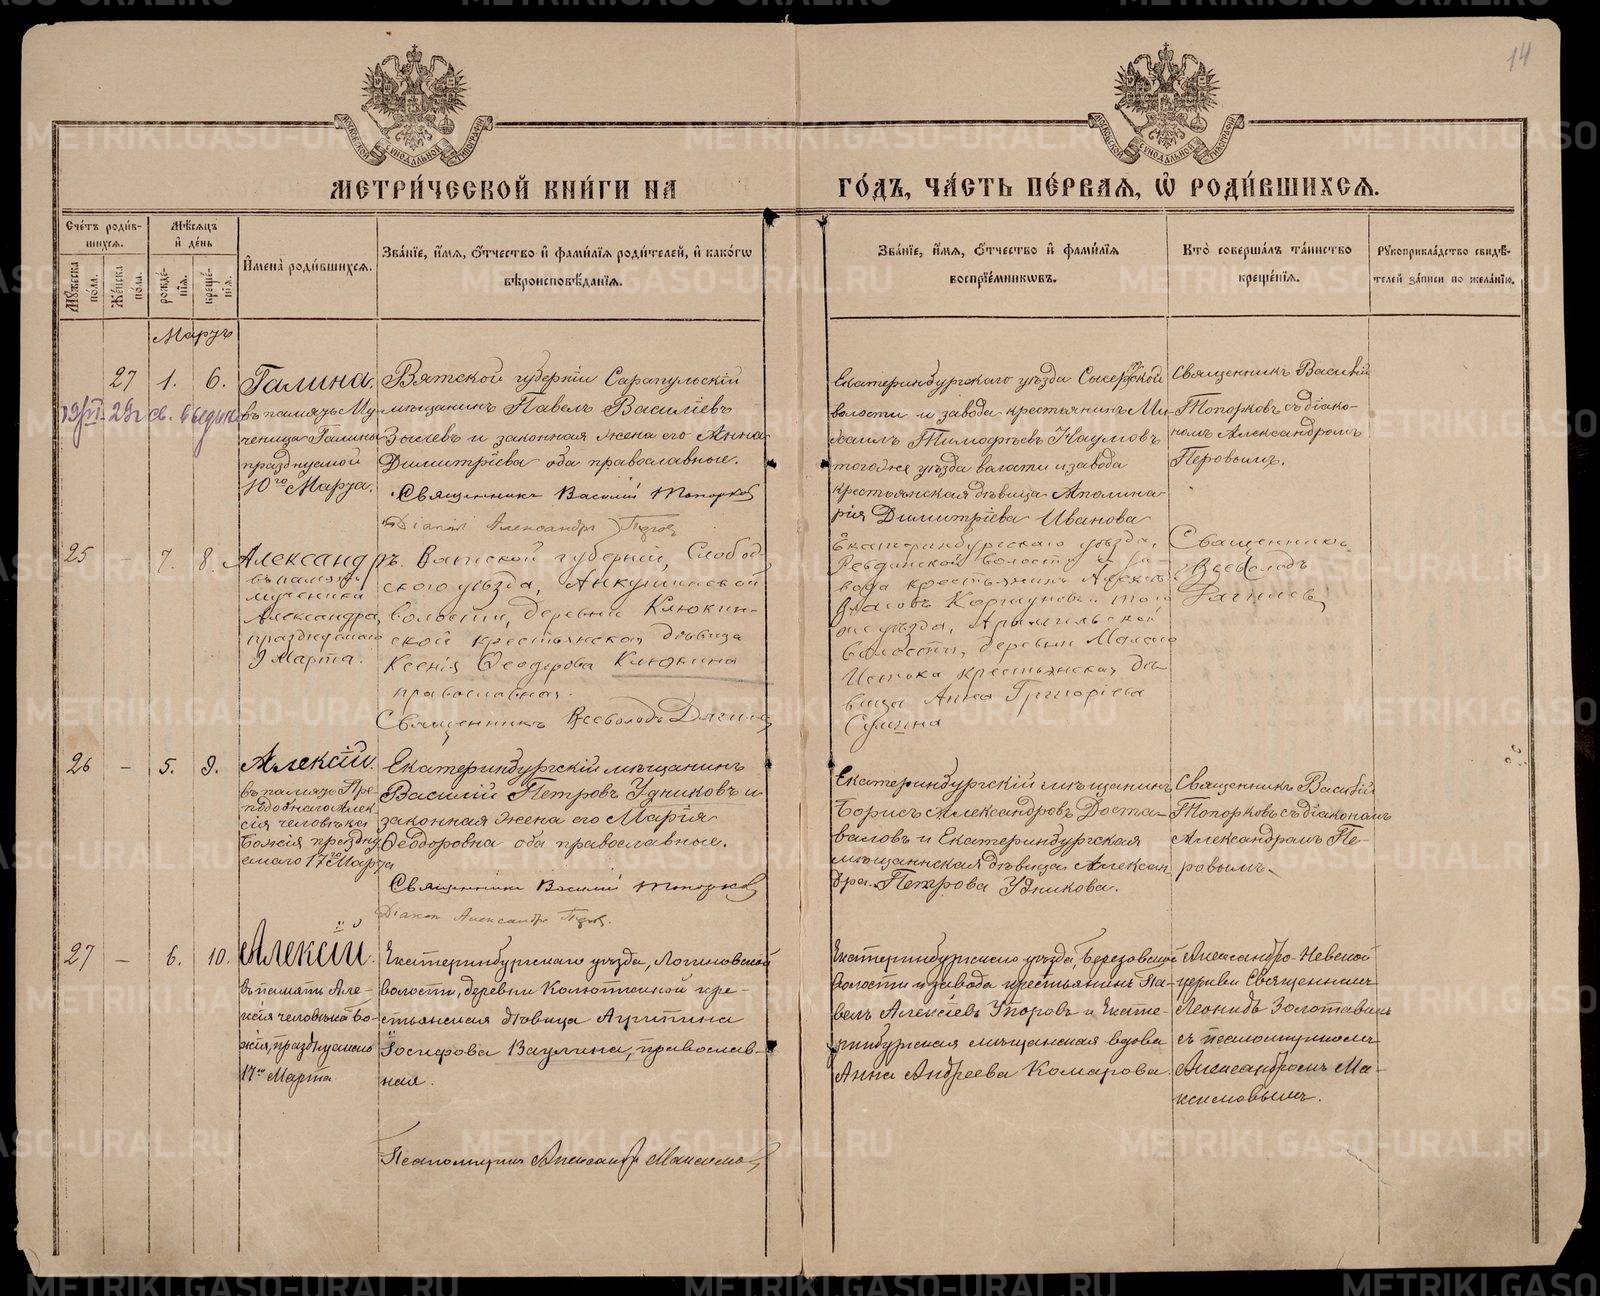 14
МОСКОВСКОЙ СѴНОДАЛЬНОЙ ТИПОГРАФІИ
МОСКОВСКОЙ СѴНОДАЛЬНОЙ ТИПОГРАФІИ
МЕТРИ́ЧЕСКОЙ КНИ́ГИ НА
ГО́ДЪ, ЧА́СТЬ ПЕ́РВАЯ, Ѡ҆ РОДИ́ВШИХСЯ.
Сче́тъ роди́в-
шихся.
Мꙋ́жеска по́ла.
Же́нска по́ла.
Мѣ́сяцъ
и҆ де́нь
рожде́-
нїя.
креще́-
нїя.
И҆мена̀ роди́вшихся.
Зва́нїе, и҆́мя, ѻ҆́тчество и҆ фами́лїя роди́телей, и҆ како́гѡ
вѣроисповѣ́данїя.
Зва́нїе, и҆́мя, ѻ҆́тчество и҆ фами́лїя
воспрїе́мникѡвъ.
Кто̀ соверша́лъ та́инство
креще́нїя.
Рꙋкоприкла́дство свидѣ́-
телей за́писи по жела́нїю.
Мартъ
27 1. 6.
Галина.
въ память Му-
ченицы Галины
празднуемой
10го Марта.
Вятской губерніи Сарапульскій
мѣщанинъ Павелъ Василіевъ
Зылевъ и законная жена его Анна
Димитріева оба православные.
Священникъ Василій Топорков
Діаконъ Александръ Перов
Екатеринбургскаго уѣзда Сысертской
волости и завода крестьянинъ Ми-
хаилъ Тимофѣевъ Наумовъ
тогоже уѣзда волости и завода
крестьянская дѣвица Аполина-
рія Димитріева Иванова
Священникъ Василій
Топорковъ съ діако-
номъ Александромъ
Перовымъ.
25 - 7. 8.
Александръ.
въ память
мученика
Александра,
празднуемаго
9 Марта.
Вятской губерніи, Слобод-
скаго уѣзда,
волости, деревни Клюкин-
ской крестьянская дѣвица
Ксенія Ѳеодорова Клюкина
православная.
Священникъ Всеволодъ Дягилев
Екатеринбургскаго уѣзда,
Ревдинской волости и за-
вода крестьянинъ
того
же уѣзда, Арамильской
волости, деревни Малаго
Истока крестьянская дѣ-
вица Анна Григоріева
Сулина
Священникъ
Всеволодъ
Дягилев
26 - 5. 9.
Алексій.
въ память Пре-
подобнаго Алек-
сія человѣка
Божія праздну-
емаго 17го Марта
Екатеринбургскій мѣщанинъ
Василій Петровъ Удниковъ и
законная жена его Марія
Ѳеодоровна оба православные.
Священникъ Василій Топорков
Діаконъ Александръ Перов.
Екатеринбургскій мѣщанинъ
Борисъ Александровъ Доста-
валовъ и Екатеринбургская
мѣщанская дѣвица Алексан-
дра Петрова Удникова.
Священникъ Василій
Топорковъ съ діакономъ
Александромъ Пе-
ровымъ.
27 - 6. 10.
Алексій.
въ память Але-
ксія человѣка Бо-
жія, празднуемаго
17го Марта
Екатеринбургскаго уѣзда, Логиновской
волости, деревни Колюткиной кре-
стьянская дѣвица Агрипина
Іосифова Ваулина, православ-
ная.
Псаломщикъ Александръ Максимов
Екатеринбургскаго уѣзда, Березовской
волости и завода крестьянинъ Па-
велъ Алексіевъ Упоровъ и Екате-
ринбургская мѣщанская вдова
Анна Андреева Комарова.
Александро-Невской
церкви Священникъ
Леонидъ Золотавинъ
съ псаломщикомъ
Александромъ Ма-
ксимовымъ.